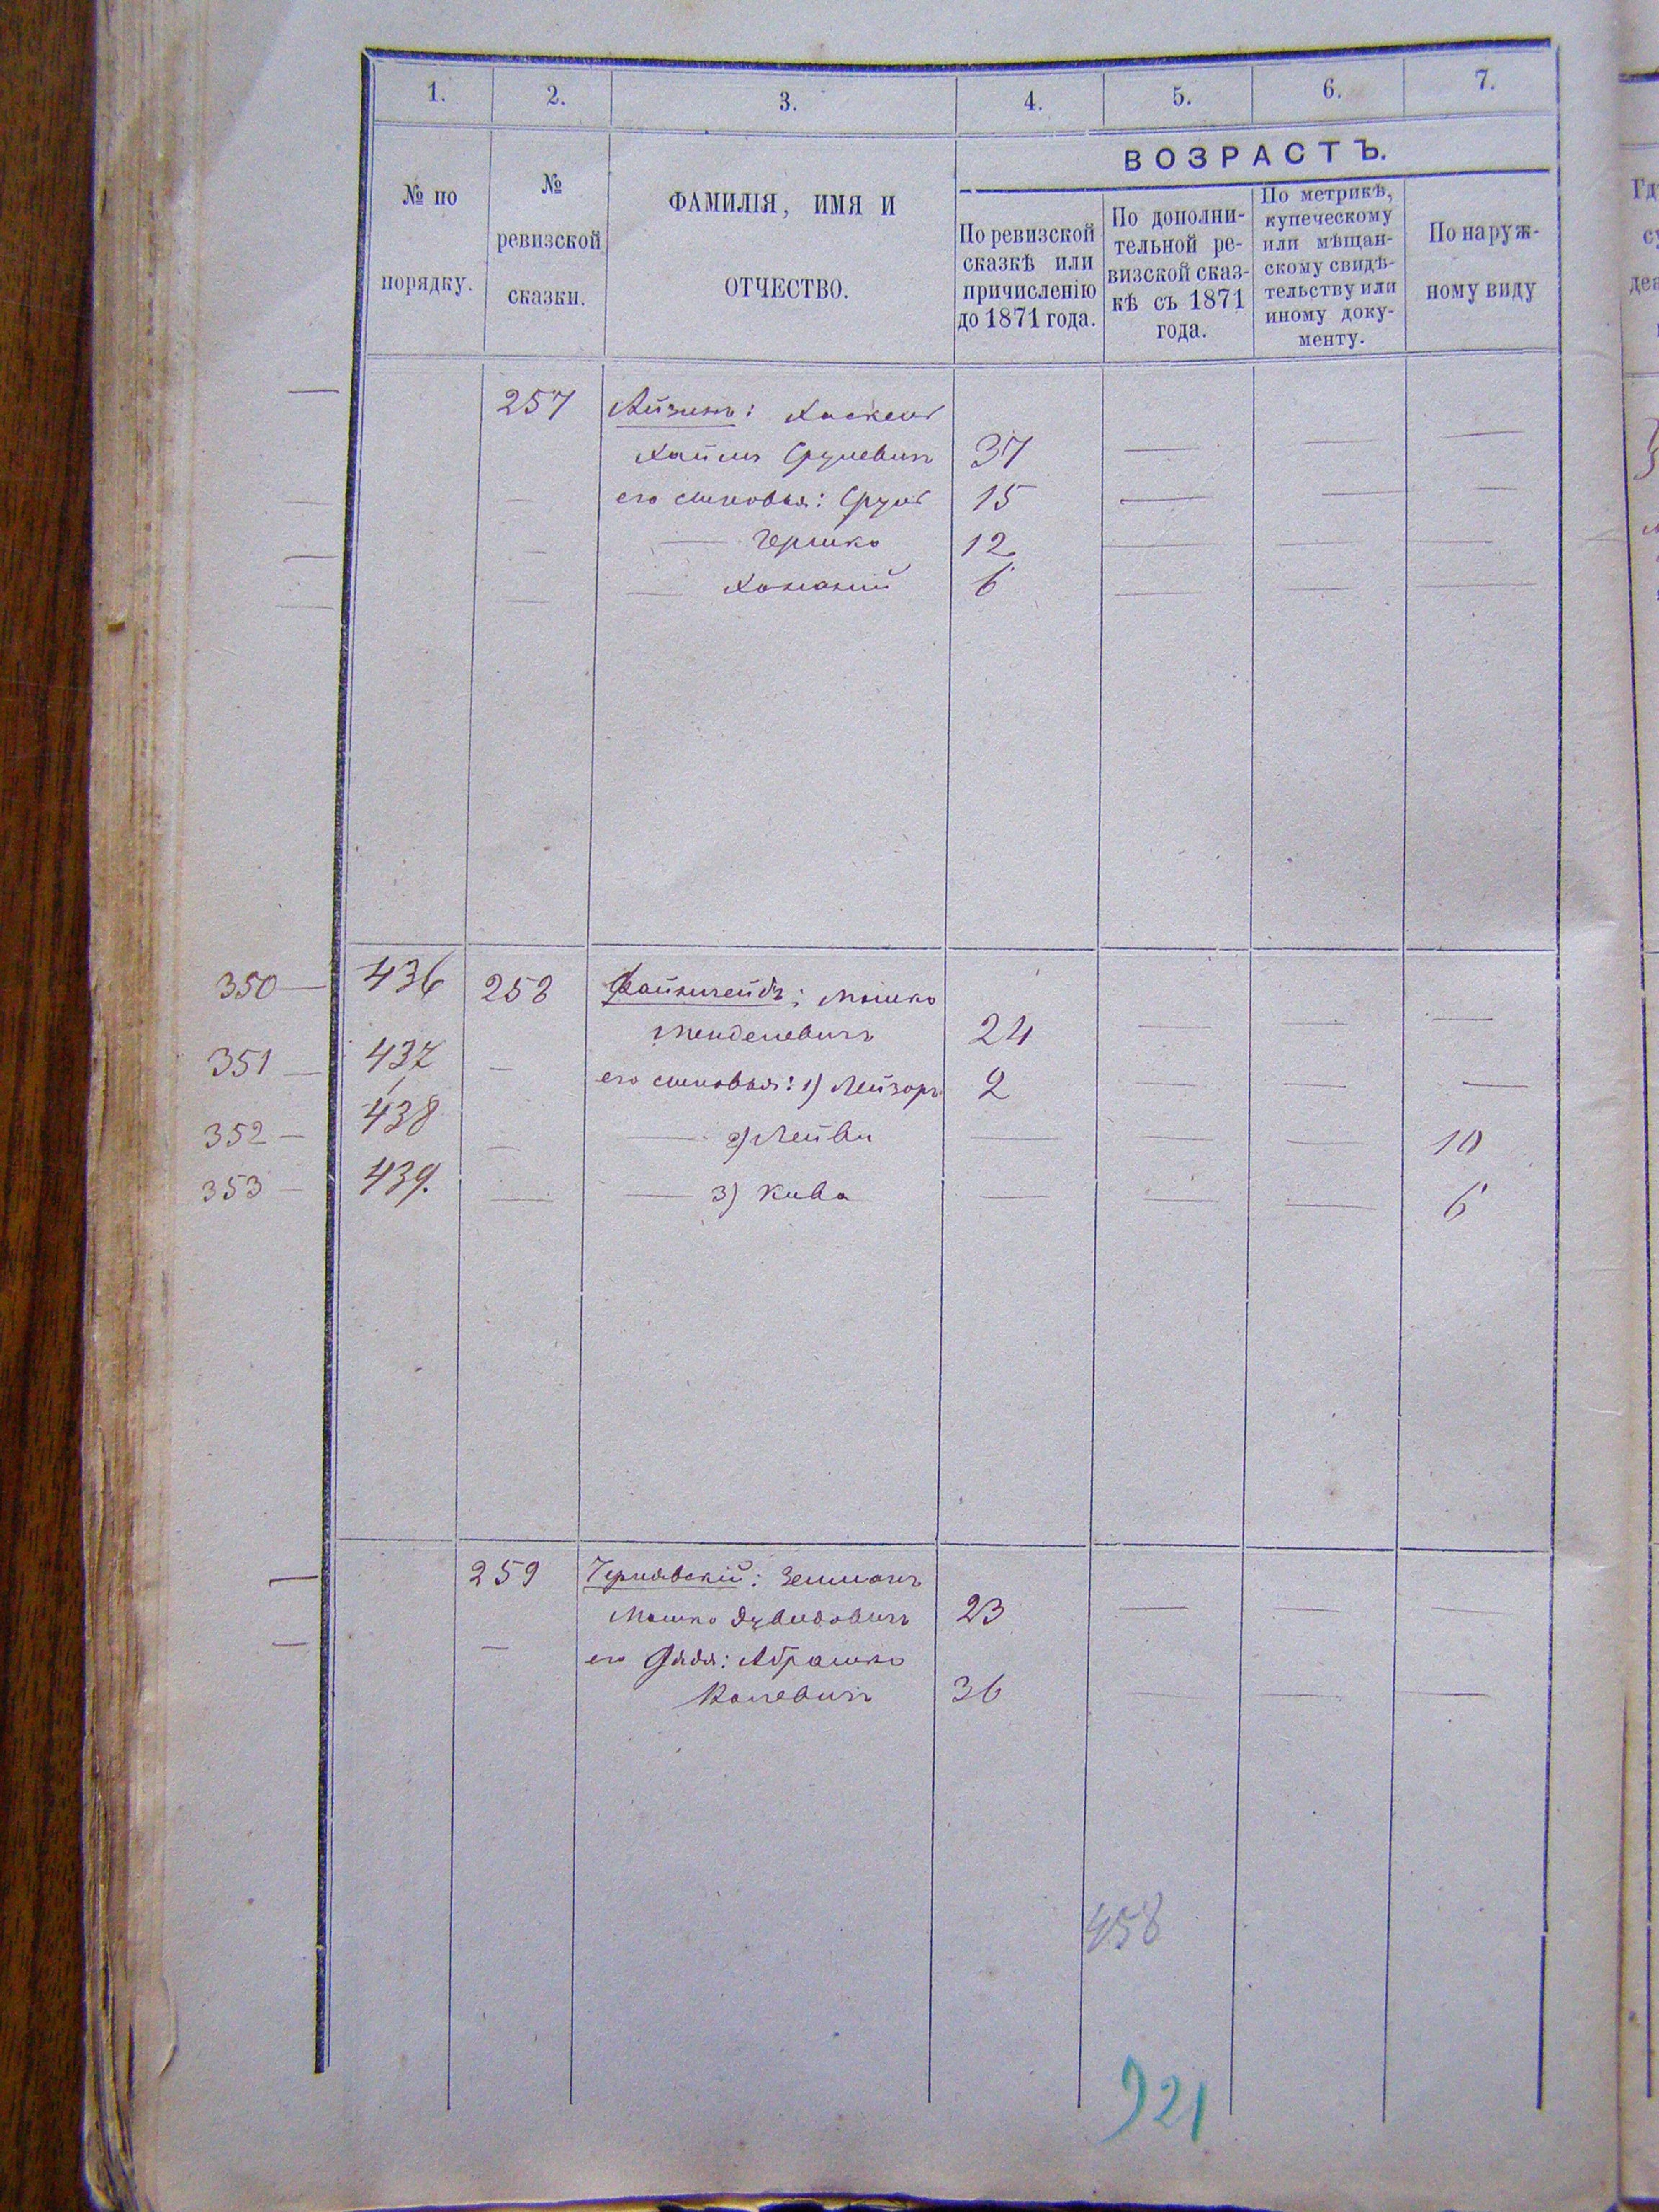 1. 2. 3. 4. 5. 6. 7.
ВОЗРАСТЪ.
№ по
порядку.
№
ревизской
сказки.
ФАМИЛІЯ, ИМЯ И
ОТЧЕСТВО.
По ревизской
сказкѣ или
причисленію
до 1871 года.
По дополни-
тельной ре-
визской сказ-
кѣ съ 1871
года.
По метрикѣ,
купеческому
или мѣщан-
скому свидѣ-
тельству или
иному доку-
менту.
По наруж-
ному виду
257 Айзинъ: Хаскель
Хаимъ Срулевичъ 37 — — —
— его сыновья: Сруль 15 — — —
— — Гершко 12 — — —
— — Хонаний 6 — — —
350 — 436 258 Файнгейдъ; Мошко
Менделевичъ 24 — — —
351 — 437 — его сыновья: 1) Лейзоръ 2 — — —
352 — 438 — — 2) Лейви — — — 10
353 — 439. — — 3) Кива — — — 6
259 Чернявскій: Зельманъ
Мошко Дувидовичъ 23 — — —
— его дядя: Абрашко
36 — — —
458
921